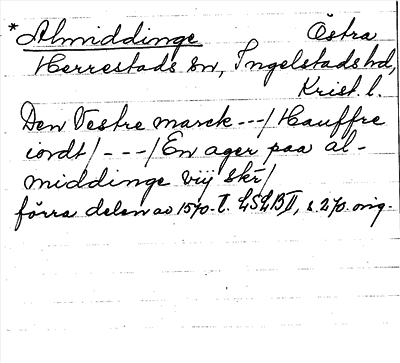 *Almiddinge Östra
Herrestads sn, Ingelstads hd,
Krist. l.
Den Vestre marck ---/ Hauffre
iordt/ - --/ En ager paa al-
middinge viij skr/
förra delen av 1570-t. LSLB II, s. 270. orig.